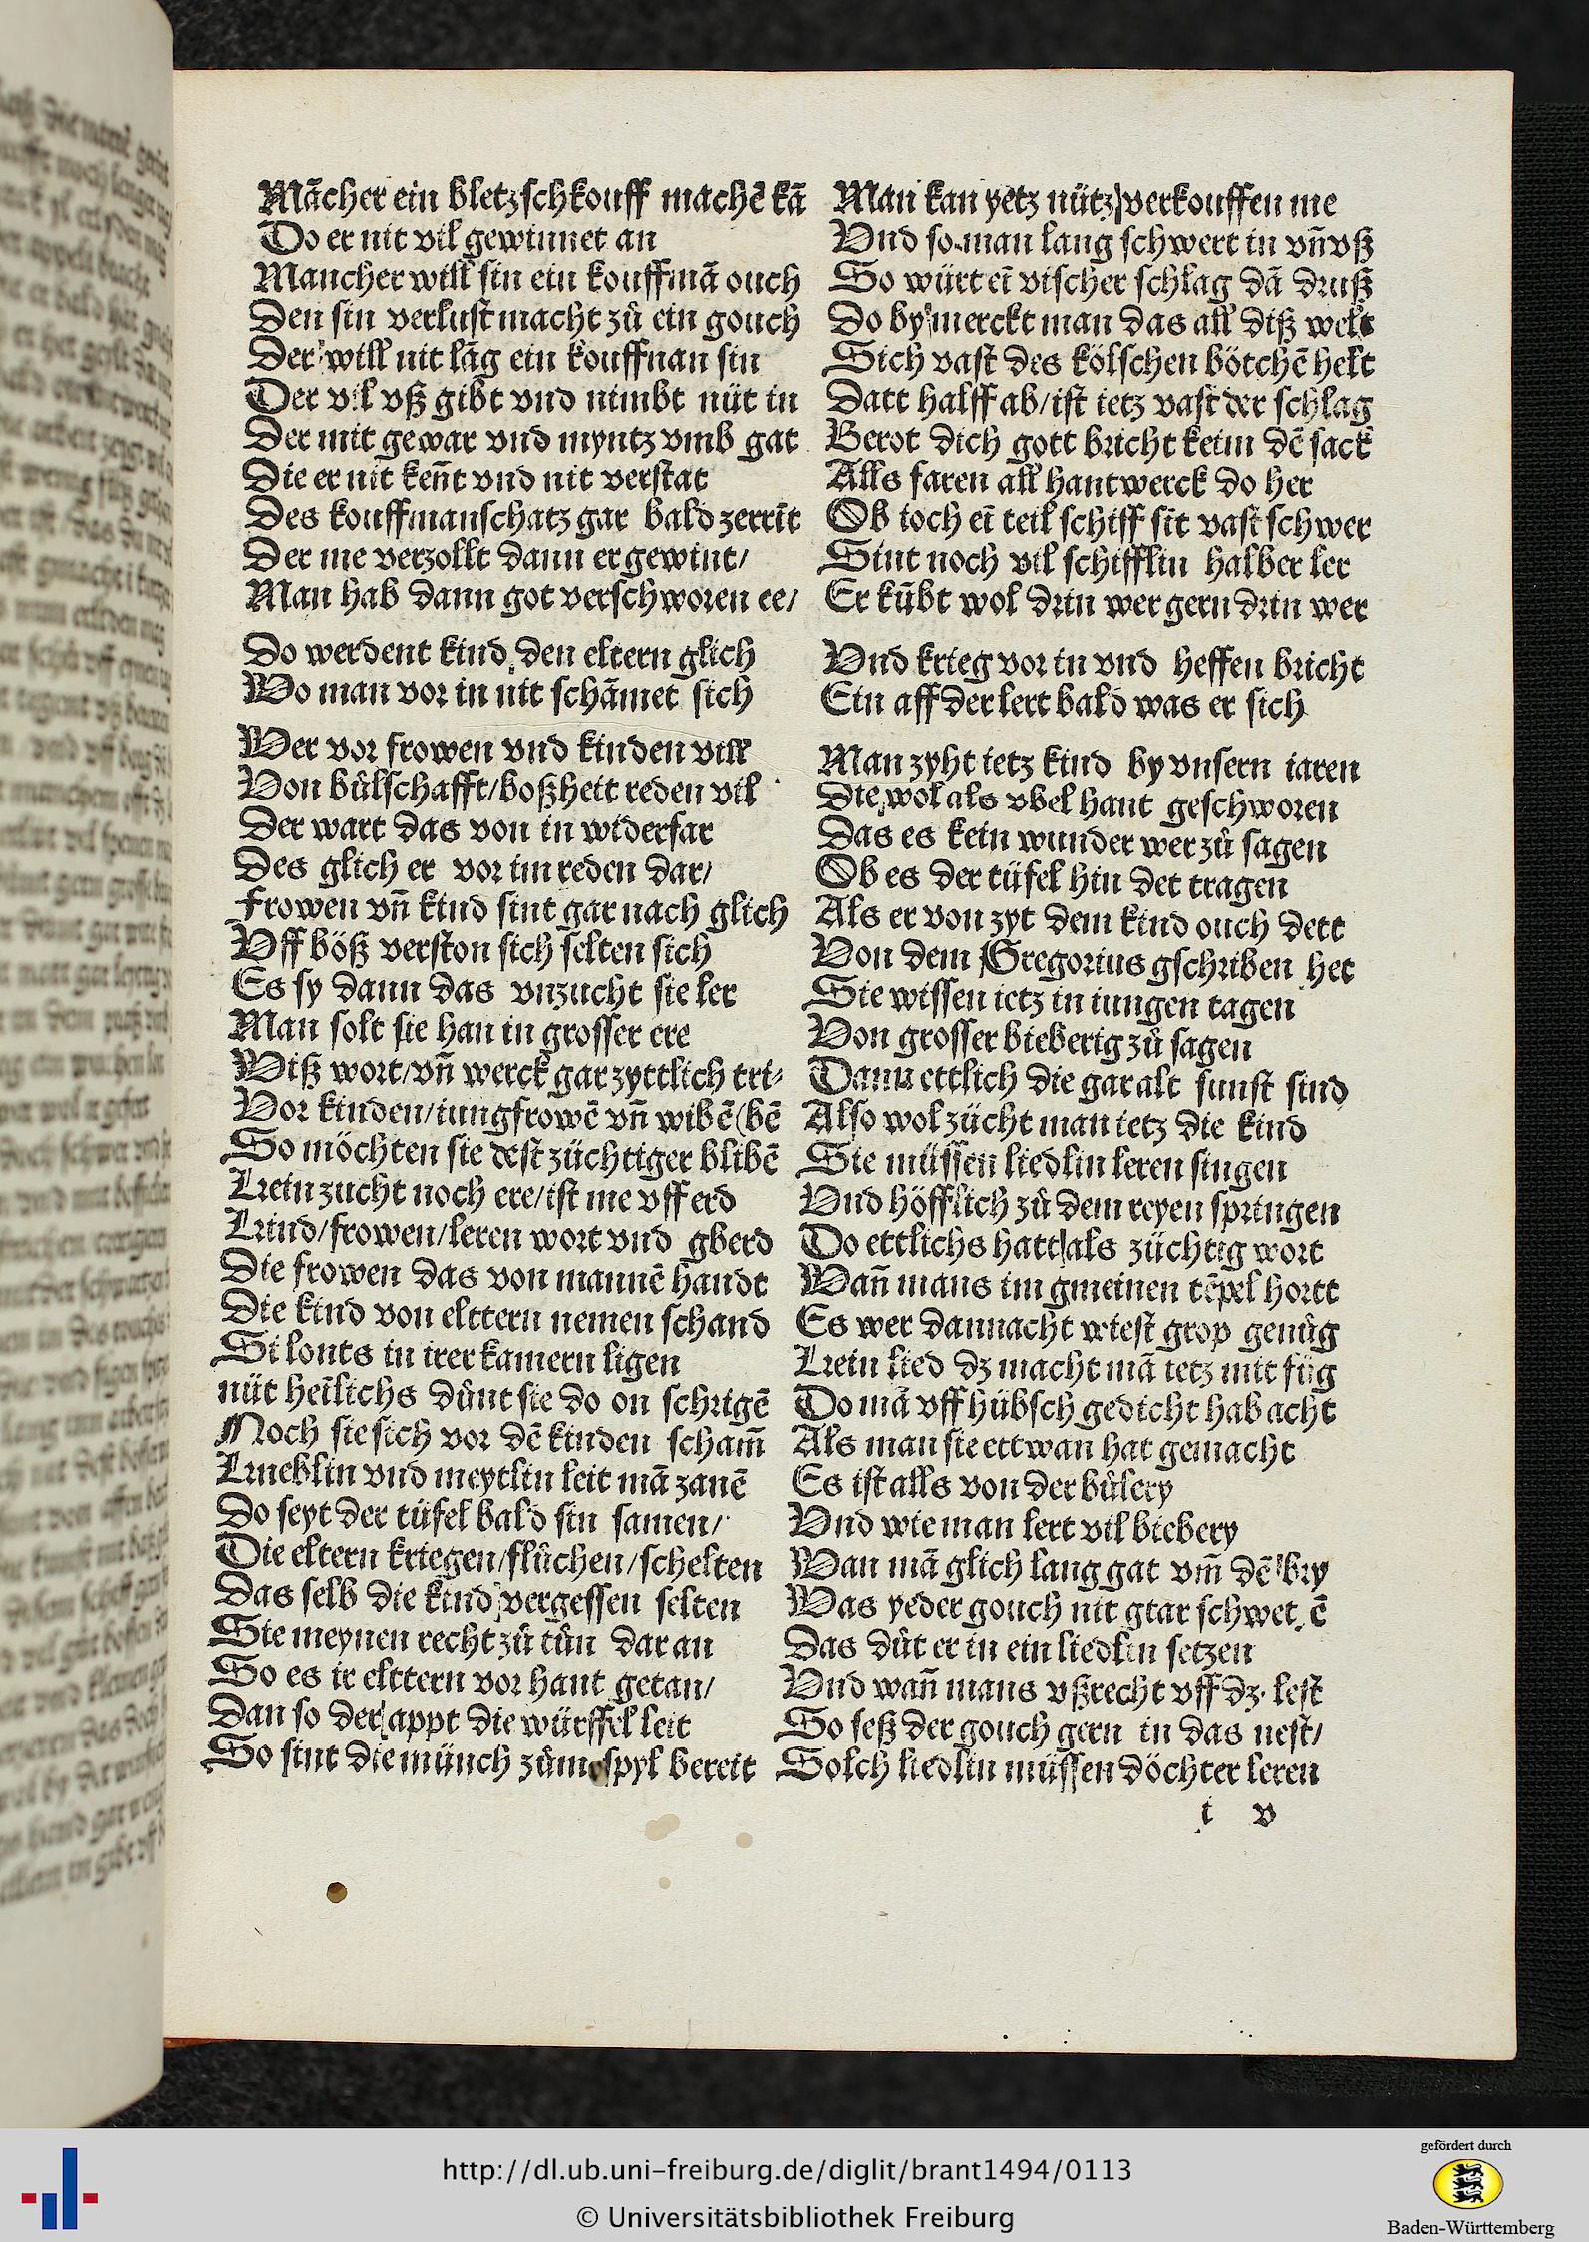 Mācher ein bletzschkouff machē kā
Do er nit vil gewinnet an
Mancher will sin ein kouffmā ouch
Den sin verlust macht zů ein gouch
Der will nit lāg ein kouffnan sin
Der vil vß gibt vnd nimbt nüt in
Der mit gewar vnd myntz vmb gat
Die er nit keñt vnd nit verstat
Des kouffmanschatz gar bald zerrīt
Der me verzollt dann er gewint/
Man hab dann got verschworen ee/
Do werdent kind den eltern glich
Wo man vor in nit schāmet sich
Wer vor frowen vnd kinden vill
Von bůlschafft/boßheit reden vil
Der wart das von in widerfar
Des glich er vor im reden dar/
Frowen vñ kind sint gar nach glich
Vff böß verston sich selten sich
Es sy dann das vnzucht sie ler
Man solt sie han in grosser ere
Wiß wort/vñ werck gar zyttlich tri-
Vor kinden/iungfrowē vñ wibē (bē
So möchten sie dest züchtiger blibē
Kein zucht noch ere/ist me vff erd
Kind/frowen/leren wort vnd gberd
Die frowen das von mannē handt
Die kind von elttern nemen schand
Si louts in irer kamern ligen
nüt heīlichs důnt sie do on schrigē
Noch sie sich vor dē kinden scham̄
Kneblin vnd meytlin leit mā zanē
Do seyt der tüfel bald sin samen/
Die eltern kriegen/flůchen/schelten
Das selb die kind vergessen selten
Sie meynen recht zů tůn dar an
So es ir elttern vor hant getan/
Dan so der appt die würffel leit
So sint die münch zům spyl bereit
Man kan yetz nütz verkouffen me
Vnd so man lang schwert in vñ vß
So würt eī vischer schlag dā druß
Do by merckt man das all diß welt
Sich vast des kölschen bötchē helt
Datt halff ab/ist ietz vast der schlag
Berot dich gott bricht keim dē sack
Alls faren all hantwerck do her
Ob ioch eī teil schiff sīt vast schwer
Sint noch vil schifflin halber ler
Er kūbt wol drin wer gern drin wer
Vnd krieg vor in vnd heffen bricht
Ein aff der lert bald was er sich
Man zyht ietz kind by vnsern iaren
Die wol als vbel hant geschworen
Das es kein wunder wer zů sagen
Ob es der tüfel hin det tragen
Als er von zyt dem kind ouch dett
Von dem Gregorius gschriben het
Sie wissen ietz in iungen tagen
Von grosser bieberig zů sagen
Dann ettlich die gar alt sunst sind
Also wol zücht man ietz die kind
Sie müssen liedlin leren singen
Vnd höfflich zů dem reyen springen
Do ettlichs hatt als züchtig wort
Wañ mans im gmeinen tēpel hortt
Es wer dannacht wiest grop genůg
Kein lied dz macht mā ietz mit füg
Do mā vff hübsch gedicht hab acht
Als man sie ettwan hat gemacht
Es ist alls von der bůlery
Vnd wie man lert vil biebery
Wan mā glich lang gat vm̄ dē bry
Was yeder gouch nit gtar schwet ē
Das důt er in ein liedlin setzen
Vnd wañ mans vßrecht vff dz lest
So seß der gouch gern in das nest/
Solch liedlin müssen döchter leren
i v
http://dl.ub.uni-freiburg.de/diglit/brant1494/0113
© Universitätsbibliothek Freiburg
gefördert durch
Baden-Württemberg